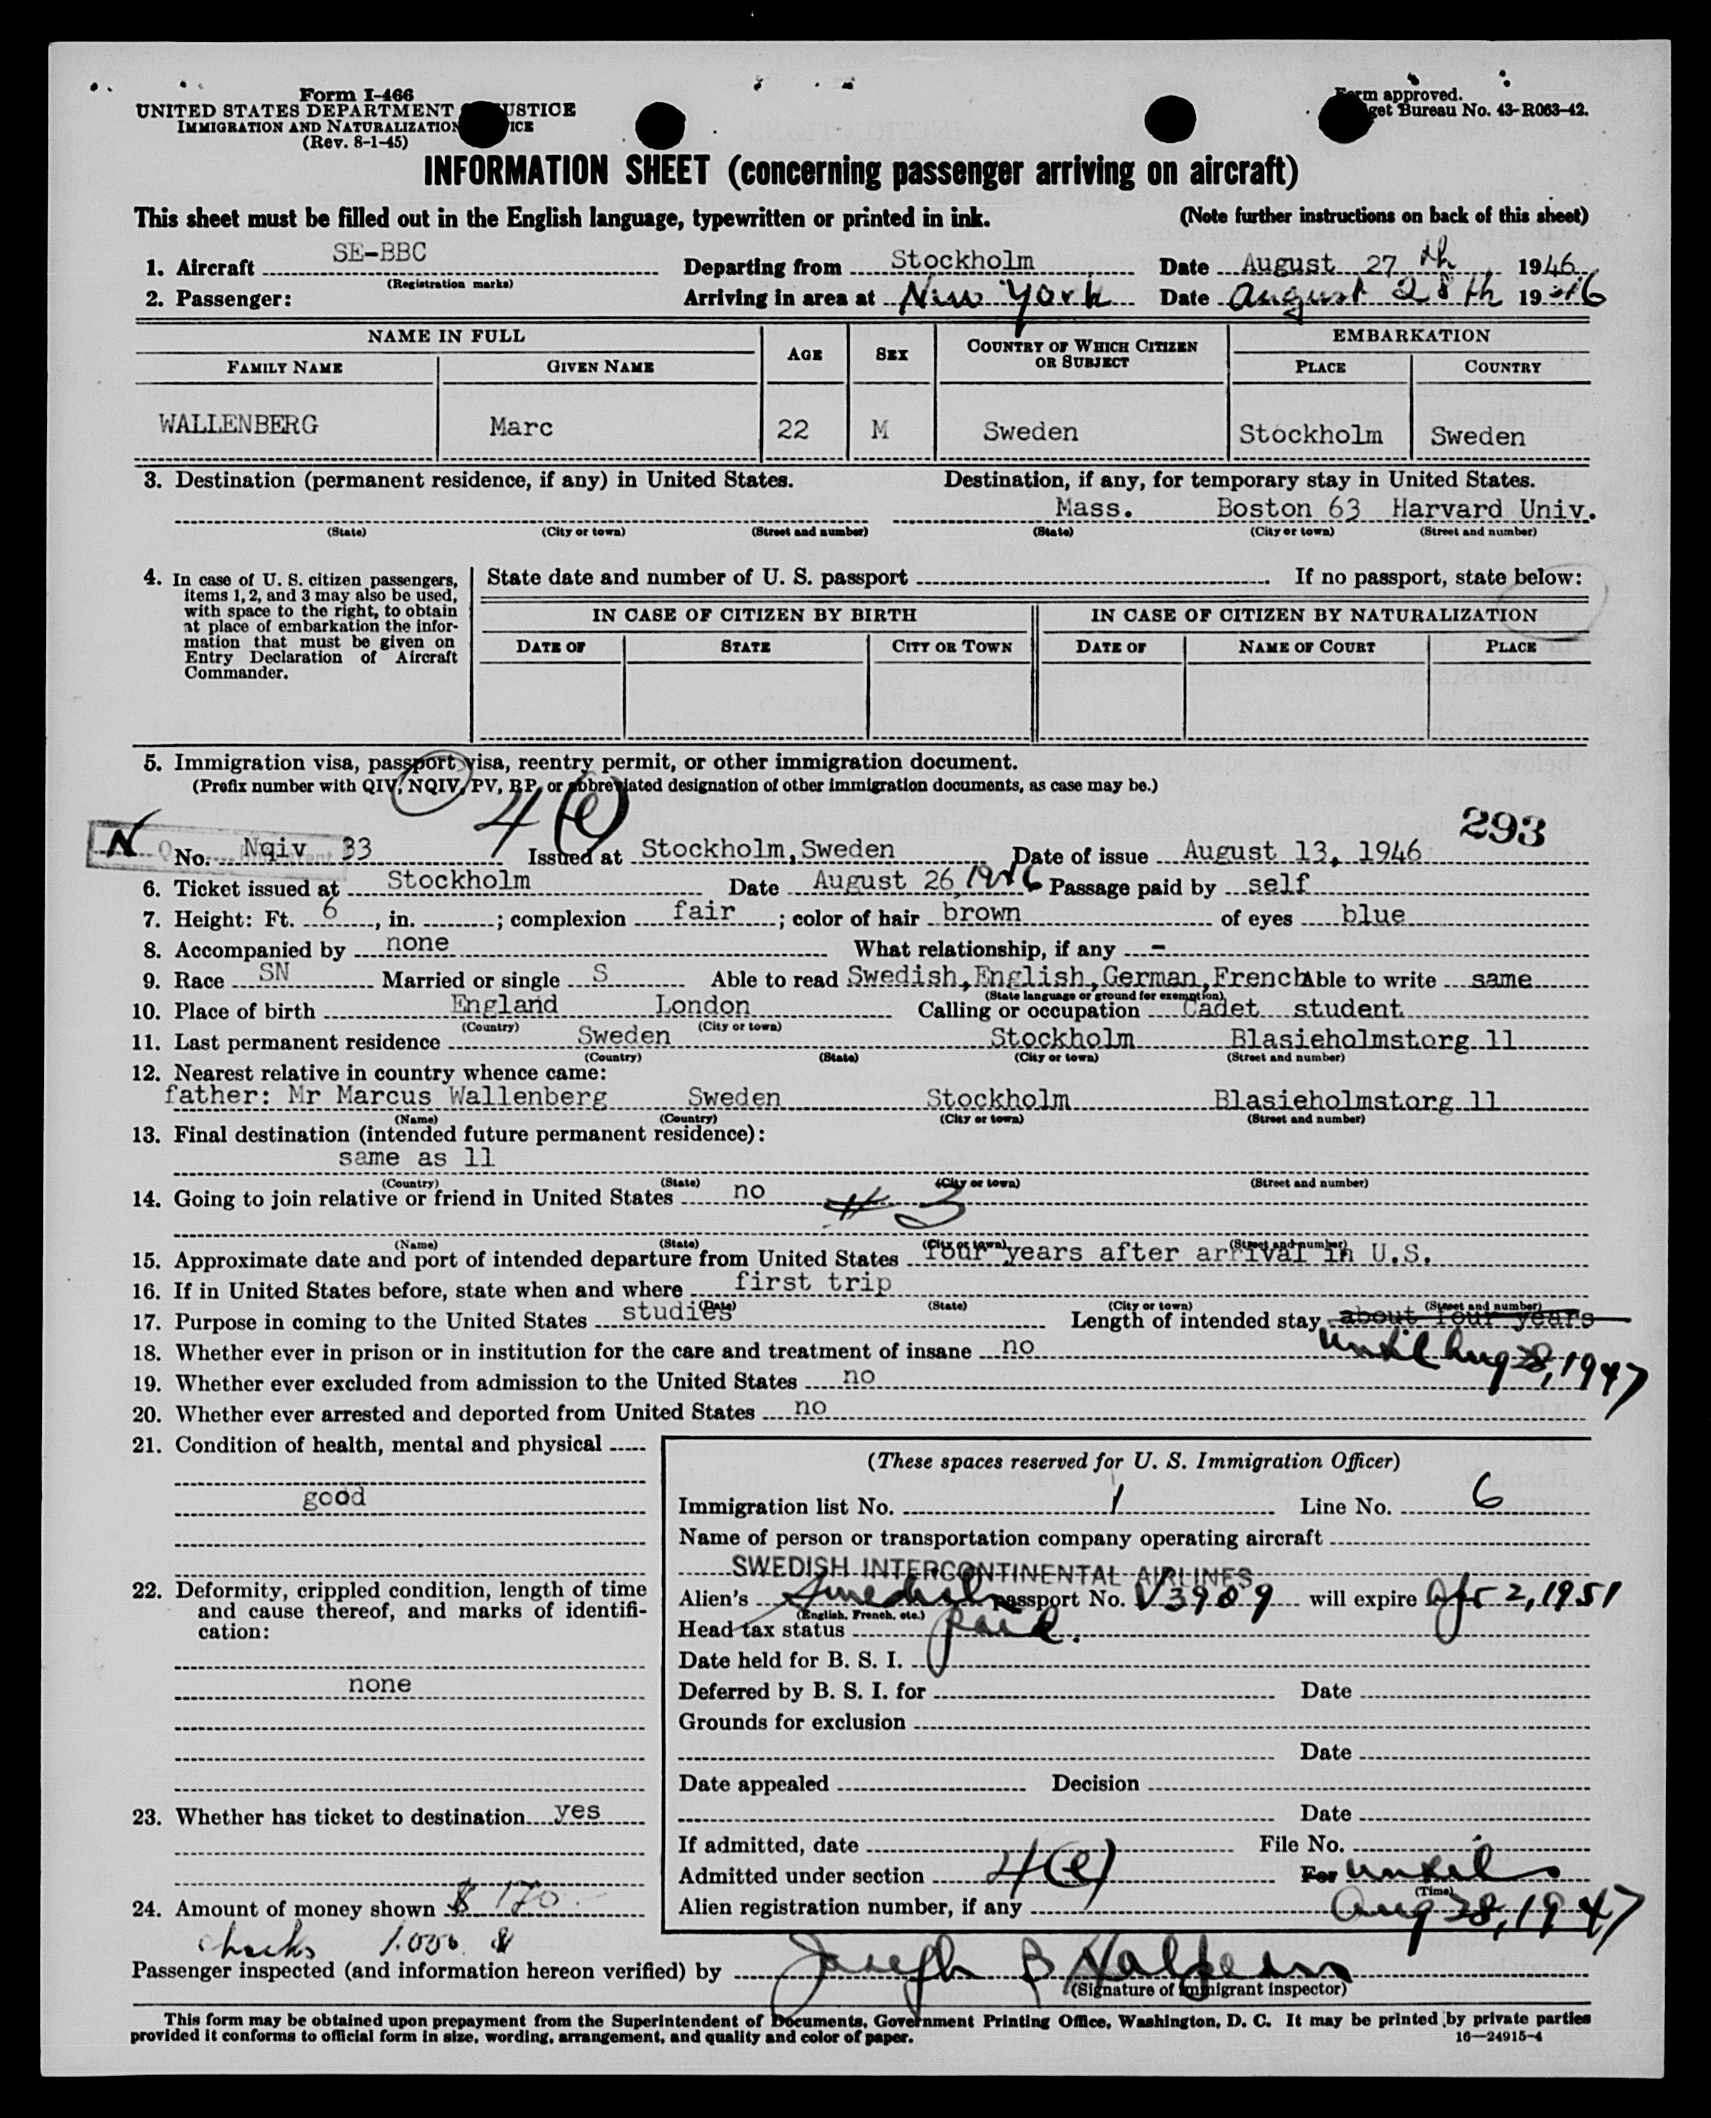 Form I-466
UNITED STATES DEPARTMENT USTICE
IMMIGRATION AND NATURALIZATION ICE
(Rev. 8-1-45)
Form approved.
get Bureau No. 43-R063-42.
INFORMATION SHEET (concerning passenger arriving on aircraft)
This sheet must be filled out in the English language, typewritten or printed in ink. (Note further instructions on back of this sheet)
1. Aircraft SE-BBC Departing from Stockholm Date August 27th, 1946
(Registration marks)
2. Passenger: Arriving in area at New York Date August 28th 1946
NAME IN FULL AGE SEX COUNTRY OF WHICH CITIZEN OR SUBJECT EMBARKATION
FAMILY NAME GIVEN NAME PLACE COUNTRY
WALLENBERG Marc 22 M Sweden Stockholm Sweden
3. Destination (permanent residence, if any) in United States. Destination, if any, for temporary stay in United States.
Mass. Boston 63 Harvard Univ.
(State) (City or town) (Street and number) (State) (City or town) (Street and number)
4. In case of U. S. citizen passengers, items 1, 2, and 3 may also be used, with space to the right, to obtain at place of embarkation the information that must be given on Entry Declaration of Aircraft Commander.
State date and number of U. S. passport If no passport, state below:
IN CASE OF CITIZEN BY BIRTH IN CASE OF CITIZEN BY NATURALIZATION
DATE OF STATE CITY OR TOWN DATE OF NAME OF COURT PLACE
5. Immigration visa, passport visa, reentry permit, or other immigration document.
(Prefix number with QIV, NQIV, PV, RP, or abbreviated designation of other immigration documents, as case may be.)
4(e)
293
N No. Nqiv 33 Issued at Stockholm, Sweden Date of issue August 13, 1946
6. Ticket issued at Stockholm Date August 26, 1946 Passage paid by self
7. Height: Ft. 6, in. ; complexion fair ; color of hair brown of eyes blue
8. Accompanied by none What relationship, if any -
9. Race SN Married or single S Able to read Swedish, English, German, French Able to write same
(State language or ground for exemption)
10. Place of birth England London Calling or occupation Cadet student
(Country) (City or town)
11. Last permanent residence Sweden Stockholm Blasieholmstorg 11
(Country) (State) (City or town) (Street and number)
12. Nearest relative in country whence came:
father: Mr Marcus Wallenberg Sweden Stockholm Blasieholmstorg 11
(Name) (Country) (City or town) (Street and number)
13. Final destination (intended future permanent residence):
same as 11
(Country) (State) (City or town) (Street and number)
14. Going to join relative or friend in United States no # 3
(Name) (State) (City or town) (Street and number)
15. Approximate date and port of intended departure from United States four years after arrival in U.S.
16. If in United States before, state when and where first trip
(Date) (State) (City or town) (Street and number)
17. Purpose in coming to the United States studies Length of intended stay about four years
until Aug 28, 1947
18. Whether ever in prison or in institution for the care and treatment of insane no
19. Whether ever excluded from admission to the United States no
20. Whether ever arrested and deported from United States no
21. Condition of health, mental and physical
good
22. Deformity, crippled condition, length of time and cause thereof, and marks of identification:
none
23. Whether has ticket to destination yes
24. Amount of money shown $ 170
checks 1.000 $
(These spaces reserved for U. S. Immigration Officer)
Immigration list No. 1 Line No. 6
Name of person or transportation company operating aircraft
SWEDISH INTERCONTINENTAL AIRLINES
Alien's Swedish passport No. V3909 will expire Apr 2, 1951
(English, French, etc.)
Head tax status paid.
Date held for B. S. I.
Deferred by B. S. I. for Date
Grounds for exclusion
Date
Date appealed Decision
Date
If admitted, date File No.
Admitted under section 4(e) For until
(Time)
Alien registration number, if any Aug 28, 1947
Passenger inspected (and information hereon verified) by Joseph B Halpern
(Signature of immigrant inspector)
This form may be obtained upon prepayment from the Superintendent of Documents, Government Printing Office, Washington, D. C. It may be printed by private parties
provided it conforms to official form in size, wording, arrangement, and quality and color of paper. 16—24915-4